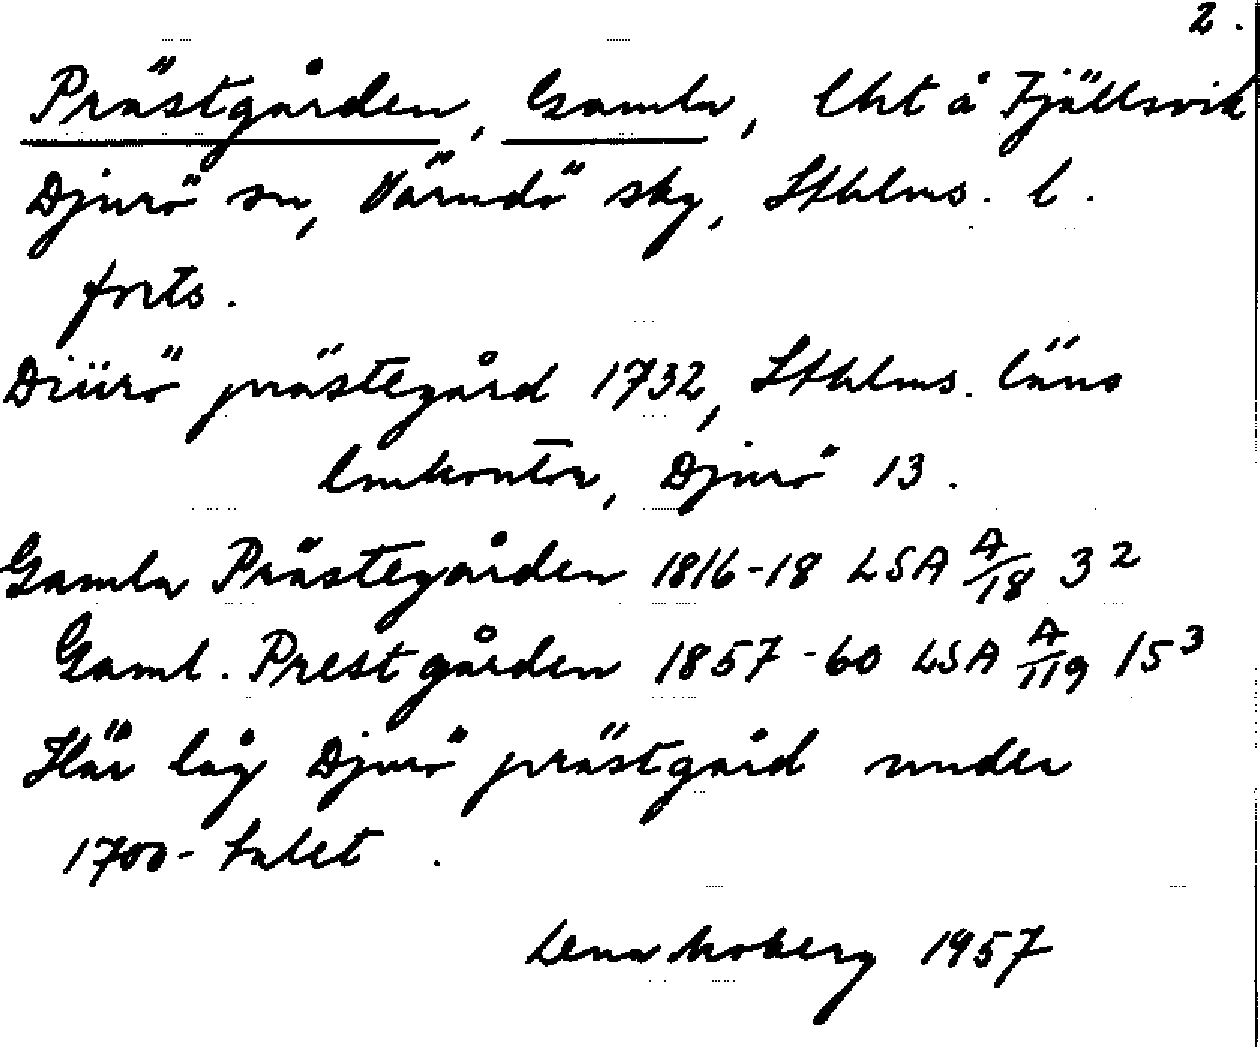 2.
Prästgården, Gamla, lht å Fjällsvik
Djurö sn, Värmdö sky, Sthlms. l.
forts.
Diürö prästegård 1732, Sthlms. läns
lmkontor, Djurö 13.
Gamla Prästegården 1816-18 LSA A/18 3²
Gaml. Prestgården 1857-60 LSA A/119 15³
Här låg Djurö prästgård under
1700-talet.
Lena Moberg 1957